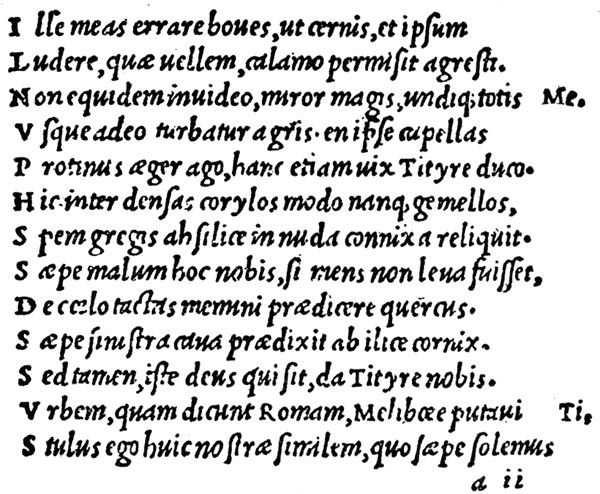 I lle meas errare boues, ut cernis, et ipsum
L udere, quæ uellem, calamo permisit agresti.
N on equidem inuideo, miror magis, undiq; totis Me.
V sque adeo turbatur agris. en ipse capellas
P rotinus æger ago, hanc etiam uix Tityre duco.
H ic inter densas corylos modo nanq; gemellos,
S pem gregis ah silice in nuda connixa reliquit.
S æpe malum hoc nobis, si mens non leua fuisset,
D e cœlo tactas memini prædicere quercus.
S æpe sinistra caua prædixit ab ilice cornix.
S ed tamen, iste deus qui sit, da Tityre nobis.
V rbem, quam dicunt Romam, Melibœe putaui Ti.
S tulus ego huic nostræ similem, quo sæpe solemus
a ii